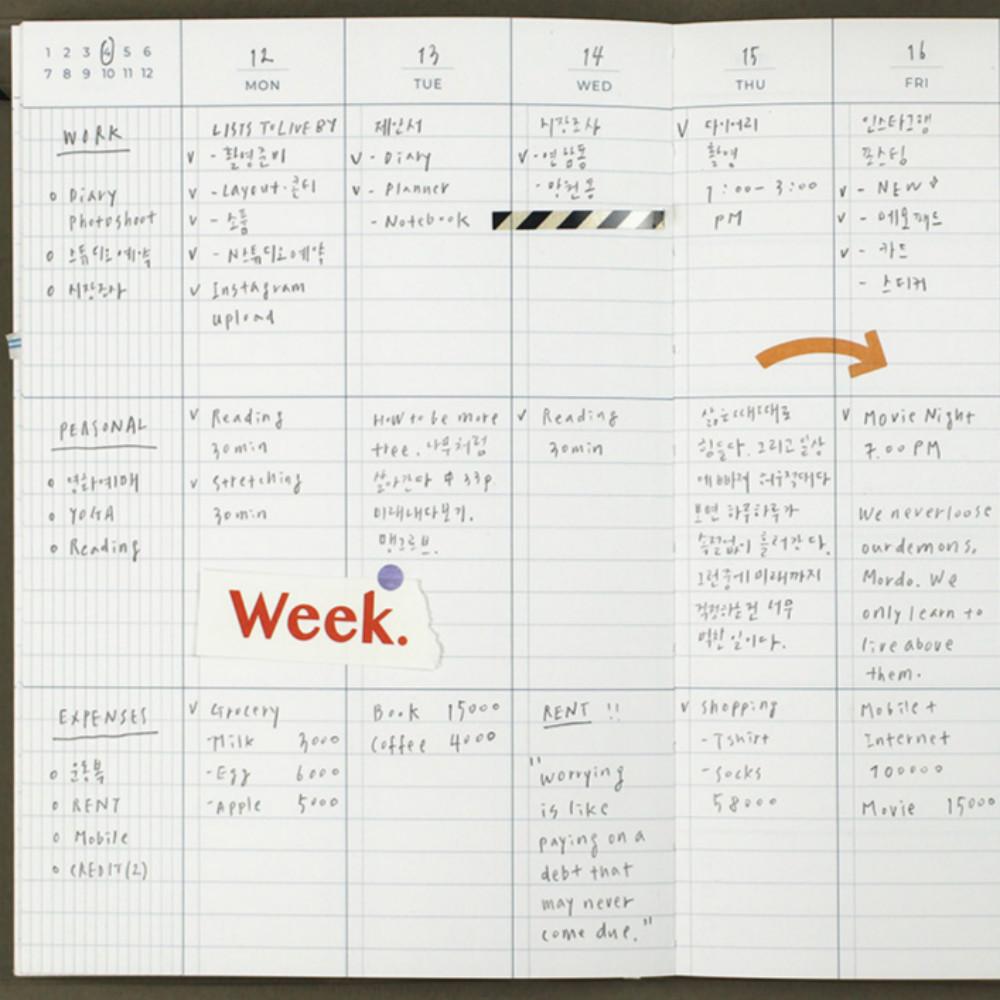 1 2 3 4 5 6
7 8 9 10 11 12
12
MON
13
TUE
14
WED
15
THU
16
FRI
WORK
o Diary
Photoshoot
o 스튜디오예약
o 시장조사
LISTS TO LIVE BY
v - 촬영준비
v - Layout·콘티
v - 소품
v - N스튜디오예약
v Instagram
upload
제안서
v - Diary
v - Planner
- Notebook
시장조사
v - 연남동
- 망원동
v 다이어리
촬영
1:00 - 3:00
PM
인스타그램
포스팅
v - NEW
v - 메모패드
v - 카드
- 스티커
PERSONAL
o 영화예매
o YOGA
o Reading
v Reading
30min
v Stretching
30min
How to be more
tree. 나무처럼
살아간다 33p.
미래내다보기.
맹그로브.
v Reading
30min
삶은 때때로
힘들다. 그리고 일상
에 빠져 허우적대다
보면 하루하루가
속절없이 흘러간다.
그런중에 미래까지
걱정하는건 너무
벅찬 일이다.
v Movie Night
7.00 PM
We never loose
our demons,
Mordo. We
only learn to
live above
them.
Week.
EXPENSES
o 운동복
o RENT
o Mobile
o CREDIT(2)
v Grocery
-Milk 3000
-Egg 6000
-Apple 5000
Book 15000
Coffee 4000
RENT !!
"worrying
is like
paying on a
debt that
may never
come due."
v shopping
- Tshirt
- socks
58000
Mobile +
Internet
100000
Movie 15000